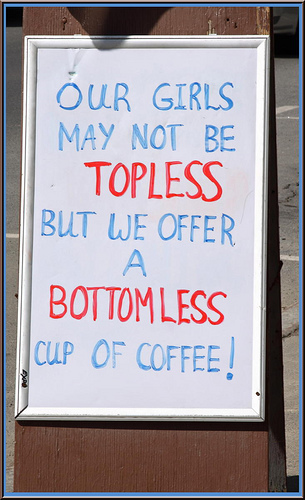 OUR GIRLS
MAY NOT BE
TOPLESS
BUT WE OFFER
A
BOTTOMLESS
CUP OF COFFEE!